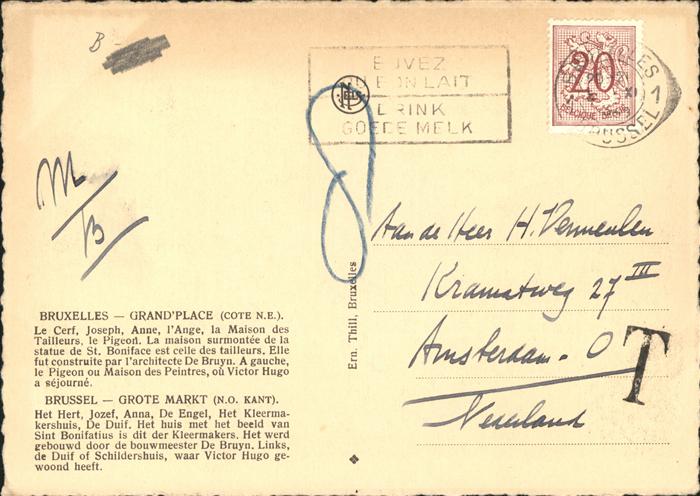 B
BUVEZ
DU BON LAIT
DRINK
GOEDE MELK
20
BELGIQUE BELGIE
BRUXELLES
1
BRUSSEL
M
B
8
Aan de Heer H. Vermeulen
Kramatweg 27 III
Amsterdam - O
Nederland
T
BRUXELLES — GRAND'PLACE (COTE N.E.).
Le Cerf, Joseph, Anne, l'Ange, la Maison des
Tailleurs, le Pigeon. La maison surmontée de la
statue de St. Boniface est celle des tailleurs. Elle
fut construite par l'architecte De Bruyn. A gauche,
le Pigeon ou Maison des Peintres, où Victor Hugo
a séjourné.
BRUSSEL — GROTE MARKT (N.O. KANT).
Het Hert, Jozef, Anna, De Engel, Het Kleerma-
kershuis, De Duif. Het huis met het beeld van
Sint Bonifatius is dit der Kleermakers. Het werd
gebouwd door de bouwmeester De Bruyn. Links,
de Duif of Schildershuis, waar Victor Hugo ge-
woond heeft.
Ern. Thill, Bruxelles